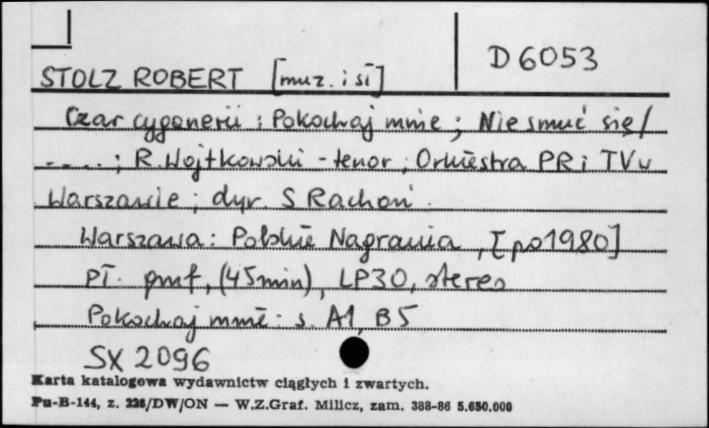 D 6053
STOLZ ROBERT [muz. i si]
Czar cyganerii : Pokochaj mnie ; Nie smuć się /
----- ; R. Wojtkowski - tenor ; Orkiestra PR i TV w
Warszawie ; dyr. S Rachoń.
Warszawa : Polskie Nagrania, [po 1980]
pł. gramof, (45 min), LP30, stereo
Pokochaj mnie : s. A1, B5
SX 2096
Karta katalogowa wydawnictw ciągłych i zwartych.
Pu-B-144, z. 228/DW/ON — W.Z.Graf. Milicz, zam. 388-86 5.650.000